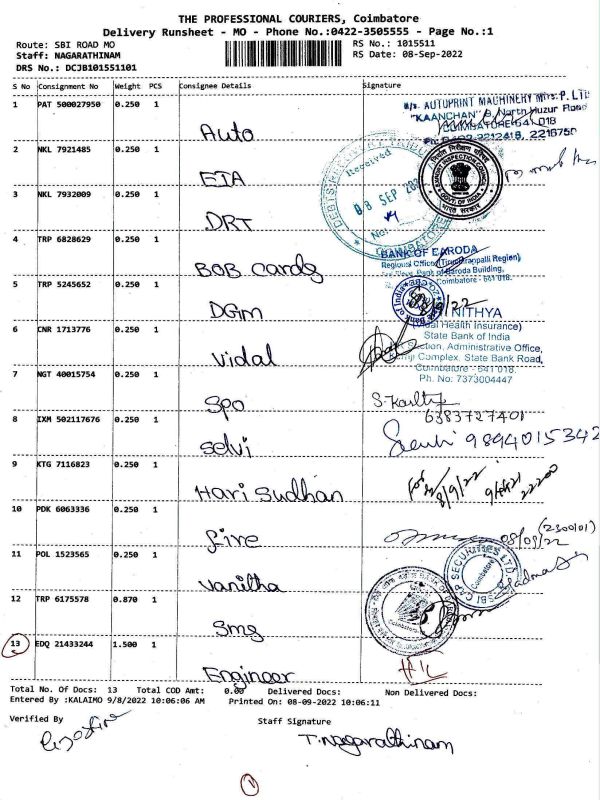 THE PROFESSIONAL COURIERS, Coimbatore
Delivery Runsheet - MO - Phone No.:0422-3505555 - Page No.:1
Route: SBI ROAD MO
RS No.: 1015511
Staff: NAGARATHINAM
RS Date: 08-Sep-2022
DRS No.: DCJB101551101
S No Consignment No Weight PCS Consignee Details Signature
1 PAT 500027950 0.250 1
Auto
M/s. AUTOPRINT MACHINERY Mfrs. P. LTD
"KAANCHAN" 8, North Huzur Road
COIMBATORE-641 018
2 NKL 7921485 0.250 1
EIA
3 NKL 7932009 0.250 1
DRT
Received
08 SEP
4 TRP 6828629 0.250 1
BOB Cards
BANK OF BARODA
Regional Office (Tiruchirappalli Region)
Bank of Baroda Building,
Coimbatore - 641 018.
5 TRP 5245652 0.250 1
DGM
8/9/22
6 CNR 1713776 0.250 1
Vidal
NITHYA
(Vidal Health Insurance)
State Bank of India
Section, Administrative Office,
Complex, State Bank Road,
Coimbatore - 641 018.
Ph. No: 7373004447
7 NGT 40015754 0.250 1
Spo
6383727401
8 IXM 502117676 0.250 1
Selvi
9894015342
9 KTG 7116823 0.250 1
Hari Sudhan
8/9/22
10 PDK 6063336 0.250 1
fire
(230001)
08/09/22
11 POL 1523565 0.250 1
Vanitha
SBI CAP SECURITIES LTD.
Coimbatore
12 TRP 6175578 0.870 1
Smg
13 EDQ 21433244 1.500 1
Engineer
Total No. Of Docs: 13 Total COD Amt: 0.00 Delivered Docs: Non Delivered Docs:
Entered By :KALAIMO 9/8/2022 10:06:06 AM Printed On: 08-09-2022 10:06:11
Verified By
Staff Signature
T. Nagarathinam
1